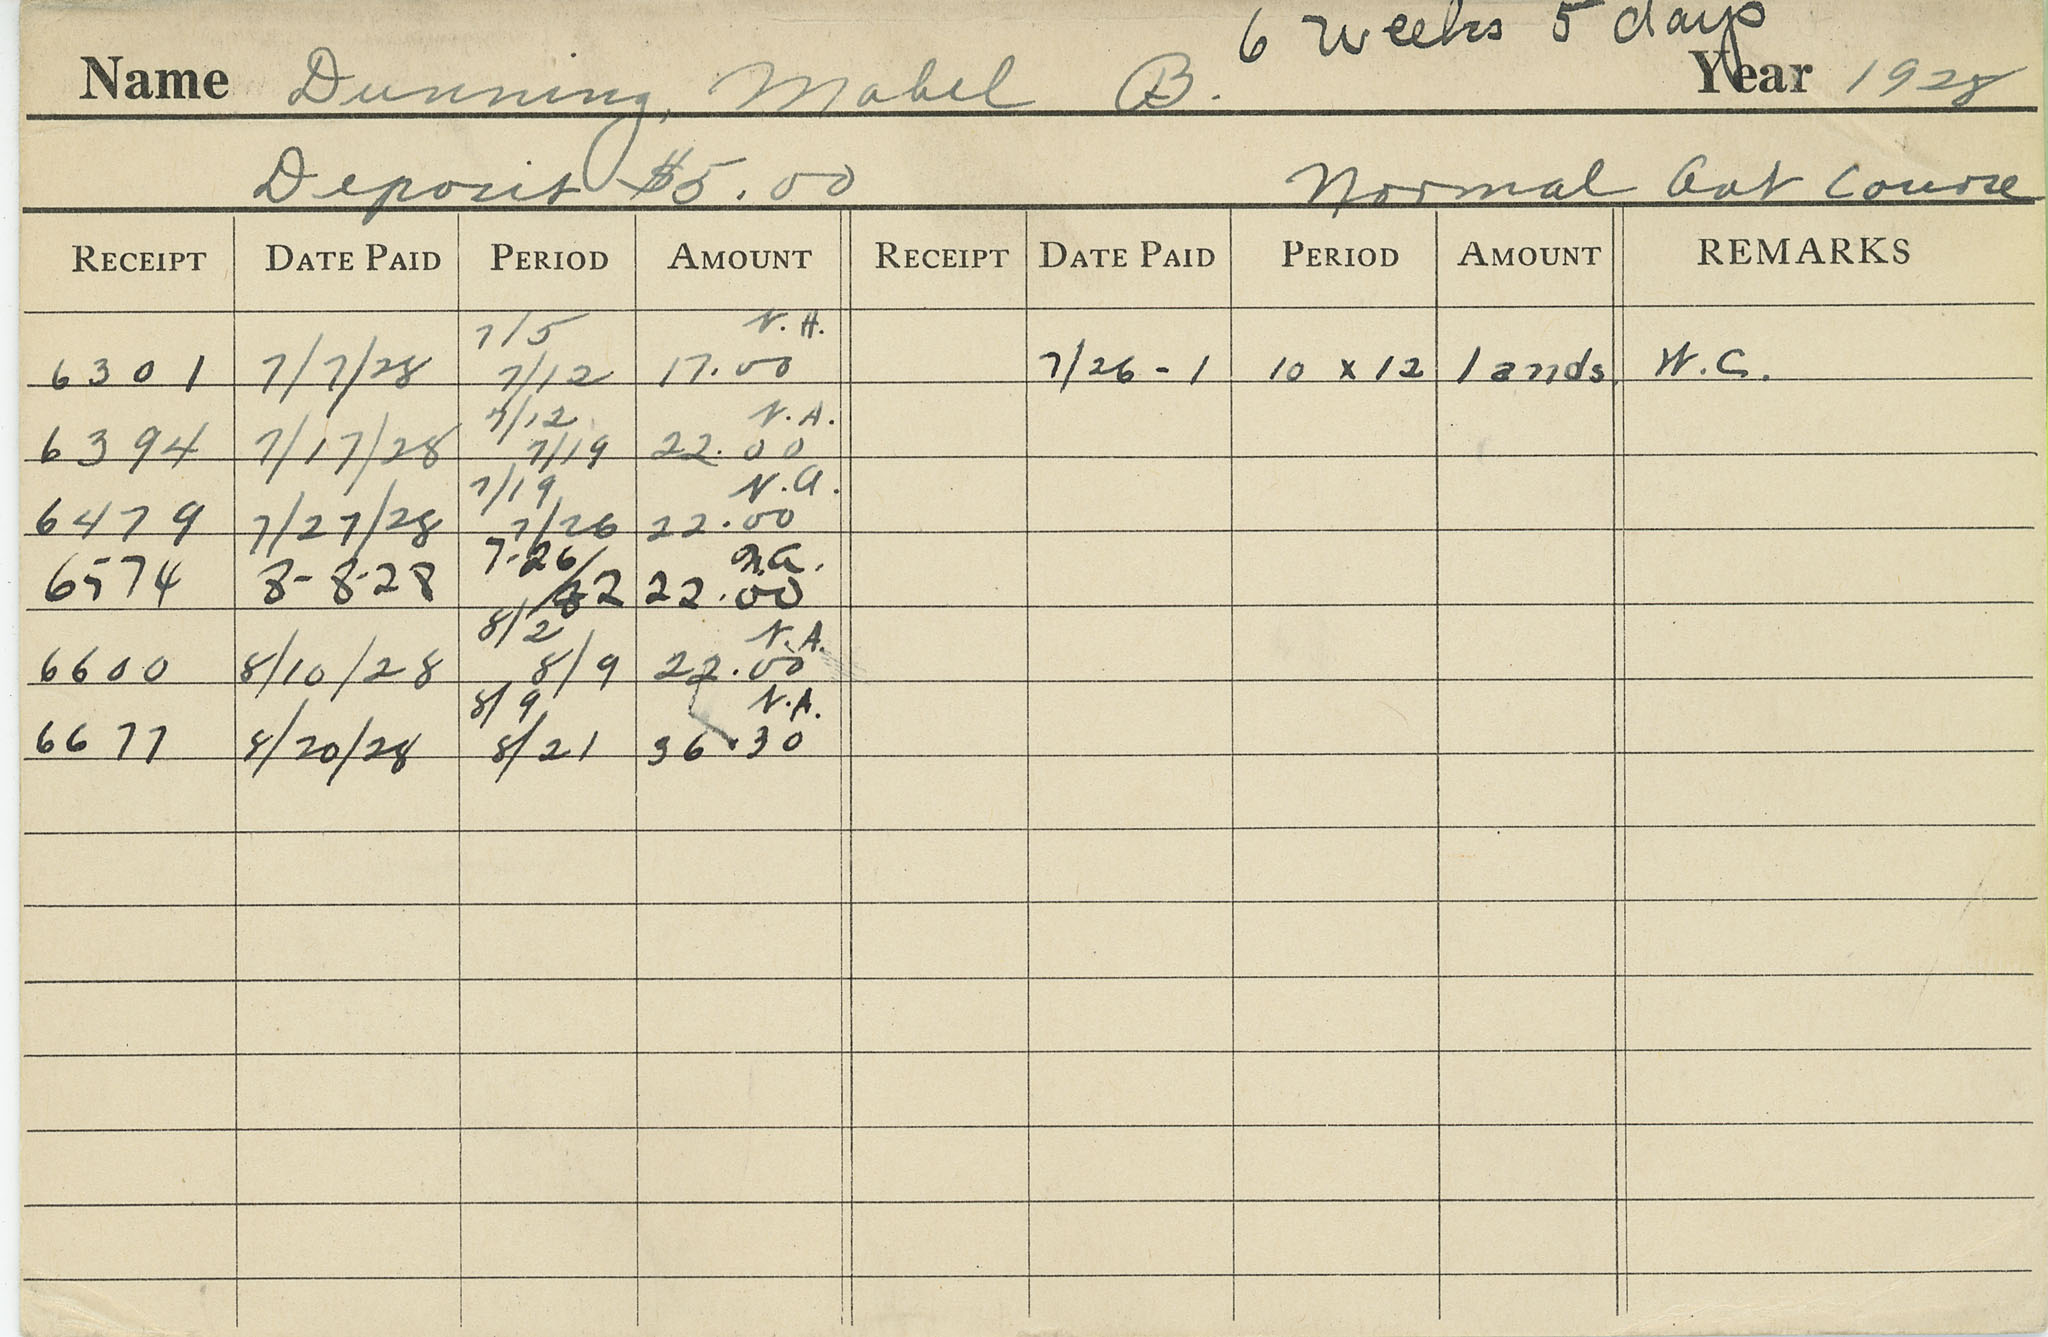 6 weeks 5 days
Name Dunning, Mabel B. Year 1928
Deposit $5.00 Normal Art Course
RECEIPT DATE PAID PERIOD AMOUNT RECEIPT DATE PAID PERIOD AMOUNT REMARKS
7/5 N.H.
6301 7/7/28 7/12 17.00 7/26-1 10 x 12 lands. W.C.
7/12 N.A.
6394 7/17/28 7/19 22.00
7/19 N.A.
6479 7/27/28 7/26 22.00
7-26/ N.A.
6574 8-8-28 82 22.00
8/2 N.A.
6600 8/10/28 8/9 22.00
8/9 N.A.
6677 8/20/28 8/21 36.30